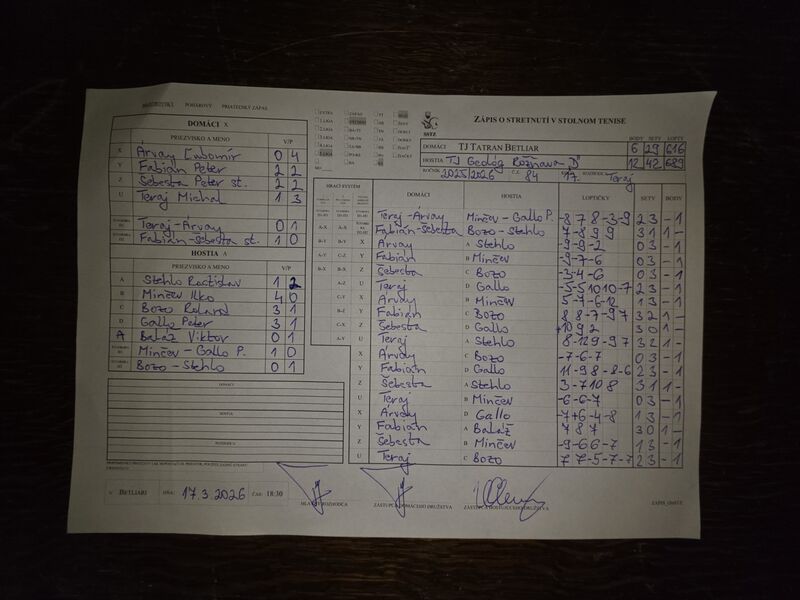 MAJSTROVSKÝ POHÁROVÝ PRIATEĽSKÝ ZÁPAS
ZÁPIS O STRETNUTÍ V STOLNOM TENISE
SSTZ
BODY SETY LOPTY
DOMÁCI TJ TATRAN BETLIAR 6 29 616
HOSTIA TJ Geológ Rožňava "D" 12 42 689
ROČNÍK 2025/2026 Č. 84 17. ROZHODCA Teraj
DOMÁCI X
PRIEZVISKO A MENO V/P
X Árvay Ľubomír 0 4
Y Fabián Peter 2 2
Z Šebesta Peter st. 2 2
U Teraj Michal 1 3
Teraj-Árvay 0 1
Fabián-Šebesta st. 1 0
HOSTIA A
PRIEZVISKO A MENO V/P
A Stehlo Rastislav 1 2
B Minčev Ilko 4 0
C Bozo Roland 3 1
D Gallo Peter 3 1
A Baláž Viktor 0 1
Minčev-Gallo P. 1 0
Bozo-Stehlo 0 1
HRACÍ SYSTÉM
DOMÁCI HOSTIA LOPTIČKY SETY BODY
Teraj-Árvay Minčev-Gallo P. -8 7 8 -3 -9 2 3 - 1
Fabián-Šebesta Bozo-Stehlo 7 -8 9 9 3 1 1 -
X Árvay A Stehlo -9 -9 -2 0 3 - 1
Y Fabián B Minčev -9 -7 -6 0 3 - 1
Z Šebesta C Bozo -3 -4 -6 0 3 - 1
U Teraj D Gallo -5 -5 10 10 -7 2 3 - 1
X Árvay B Minčev 5 -7 -6 -12 1 3 - 1
Y Fabián C Bozo 8 8 -7 -9 7 3 2 1 -
Z Šebesta D Gallo 10 9 2 3 0 1 -
U Teraj A Stehlo -8 12 9 -9 7 3 2 1 -
X Árvay C Bozo -7 -6 -7 0 3 - 1
Y Fabián D Gallo 11 -9 8 -8 -6 2 3 - 1
Z Šebesta A Stehlo 3 -7 10 8 3 1 1 -
U Teraj B Minčev -6 -6 -7 0 3 - 1
X Árvay D Gallo -7 +6 -4 -8 1 3 - 1
Y Fabián A Baláž 7 8 7 3 0 1 -
Z Šebesta B Minčev -9 -6 6 -7 1 3 - 1
U Teraj C Bozo 7 7 -5 -7 -7 2 3 - 1
DOMÁCI
HOSTIA
ROZHODCA
V BETLIARI DŇA: 17.3.2026 ČAS: 18:30
HLAVNÝ ROZHODCA ZÁSTUPCA DOMÁCEHO DRUŽSTVA ZÁSTUPCA HOSŤUJÚCEHO DRUŽSTVA